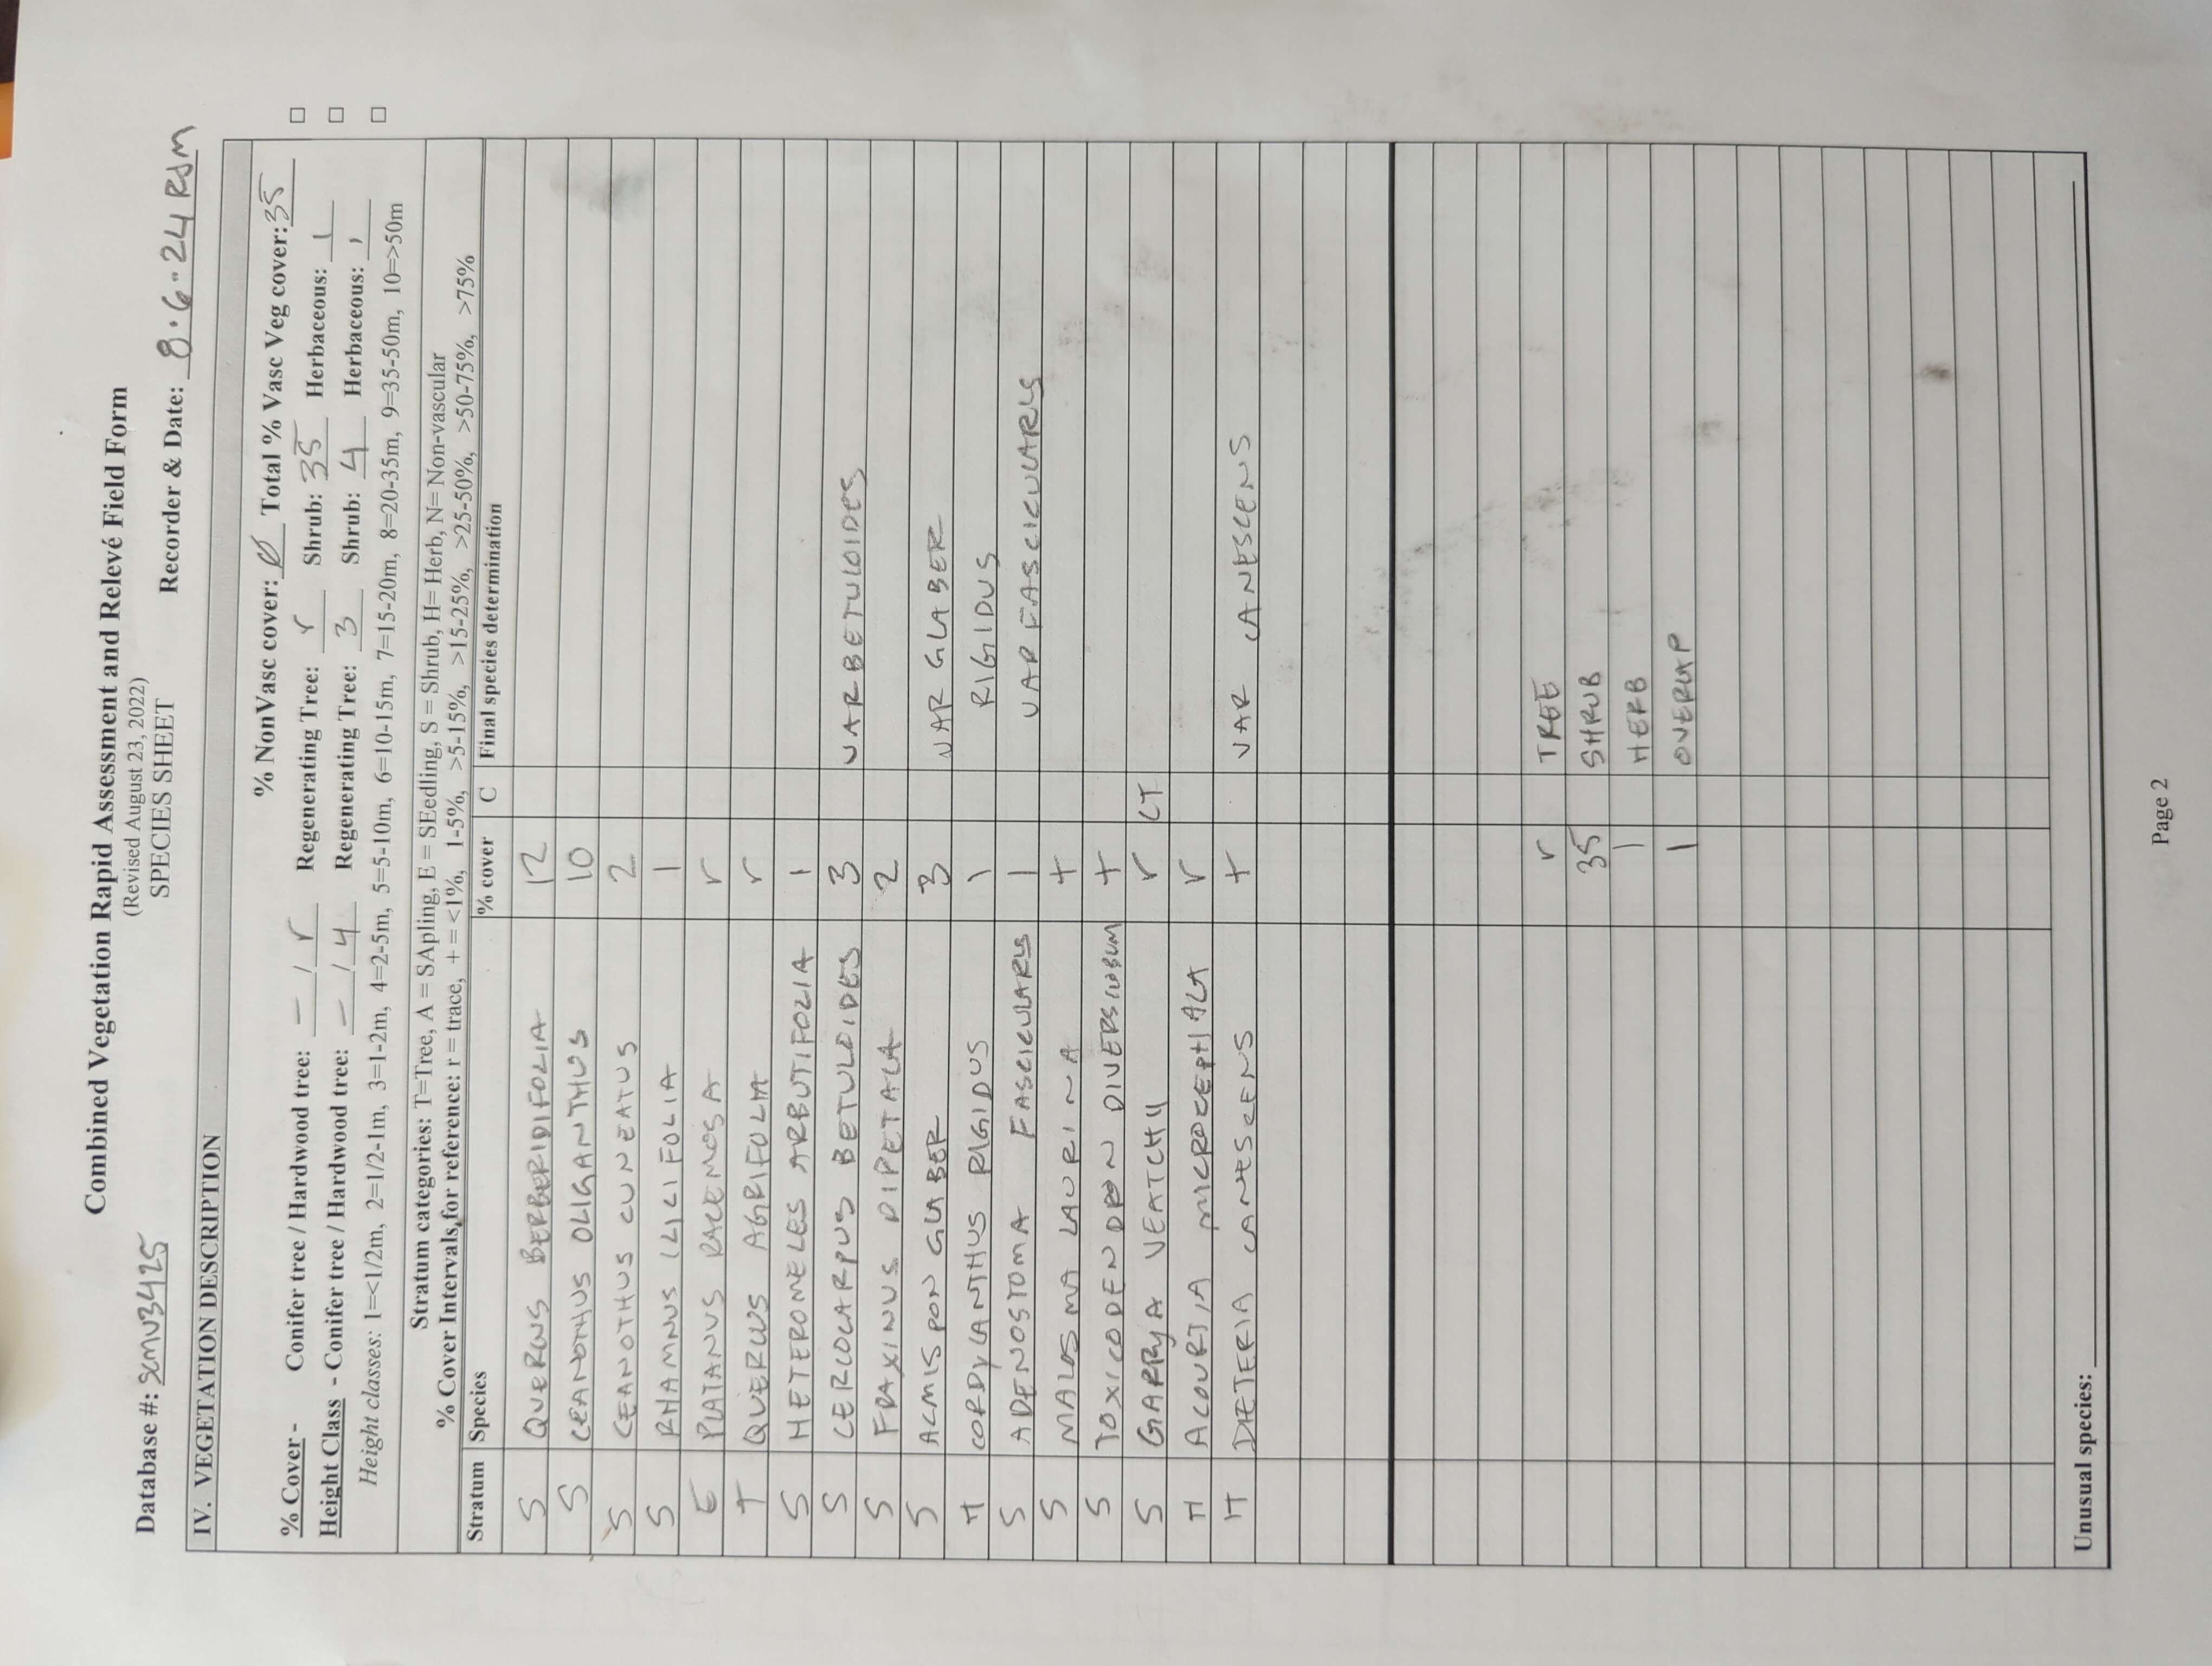 Combined Vegetation Rapid Assessment and Relevé Field Form
(Revised August 23, 2022)
SPECIES SHEET
Database #: SCMV3425 Recorder & Date: 8·6·24 RSM
IV. VEGETATION DESCRIPTION
% NonVasc cover: Ø Total % Vasc Veg cover: 35
% Cover - Conifer tree / Hardwood tree: – / r Regenerating Tree: r Shrub: 35 Herbaceous: 1
Height Class - Conifer tree / Hardwood tree: – / 4 Regenerating Tree: 3 Shrub: 4 Herbaceous: 1
Height classes: 1=<1/2m, 2=1/2-1m, 3=1-2m, 4=2-5m, 5=5-10m, 6=10-15m, 7=15-20m, 8=20-35m, 9=35-50m, 10=>50m
Stratum categories: T=Tree, A = SApling, E = SEedling, S = Shrub, H= Herb, N= Non-vascular
% Cover Intervals for reference: r = trace, + = <1%, 1-5%, >5-15%, >15-25%, >25-50%, >50-75%, >75%
Stratum Species % cover C Final species determination
S QUERCUS BERBERIDIFOLIA 12
S CEANOTHUS OLIGANTHUS 10
S CEANOTHUS CUNEATUS 2
S RHAMNUS ILICIFOLIA 1
E PLATANUS RACEMOSA r
T QUERCUS AGRIFOLIA r
S HETEROMELES ARBUTIFOLIA 1
S CERCOCARPUS BETULOIDES 3 VAR BETULOIDES
S FRAXINUS DIPETALA 2
S ACMISPON GLABER 3 VAR GLABER
H CORDYLANTHUS RIGIDUS 1 RIGIDUS
S ADENOSTOMA FASCICULARIS 1 VAR FASCICULARIS
S MALOSMA LAURINA +
S TOXICODENDRON DIVERSILOBUM +
S GARRYA VEATCHII r CT
H ACOURTIA MICROCEPHALA r
H DIETERIA CANESCENS + VAR CANESCENS
r TREE
35 SHRUB
1 HERB
1 OVERLAP
Unusual species:
Page 2